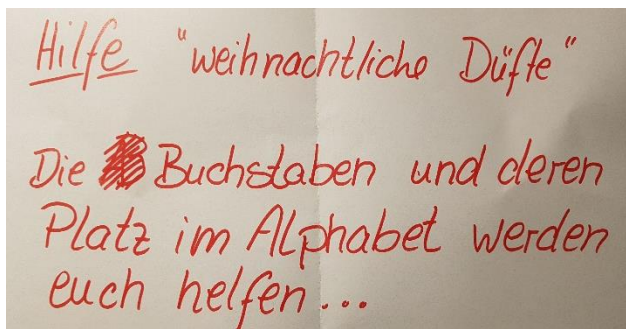 Hilfe "weihnachtliche Düfte"
Die Buchstaben und deren
Platz im Alphabet werden
euch helfen...